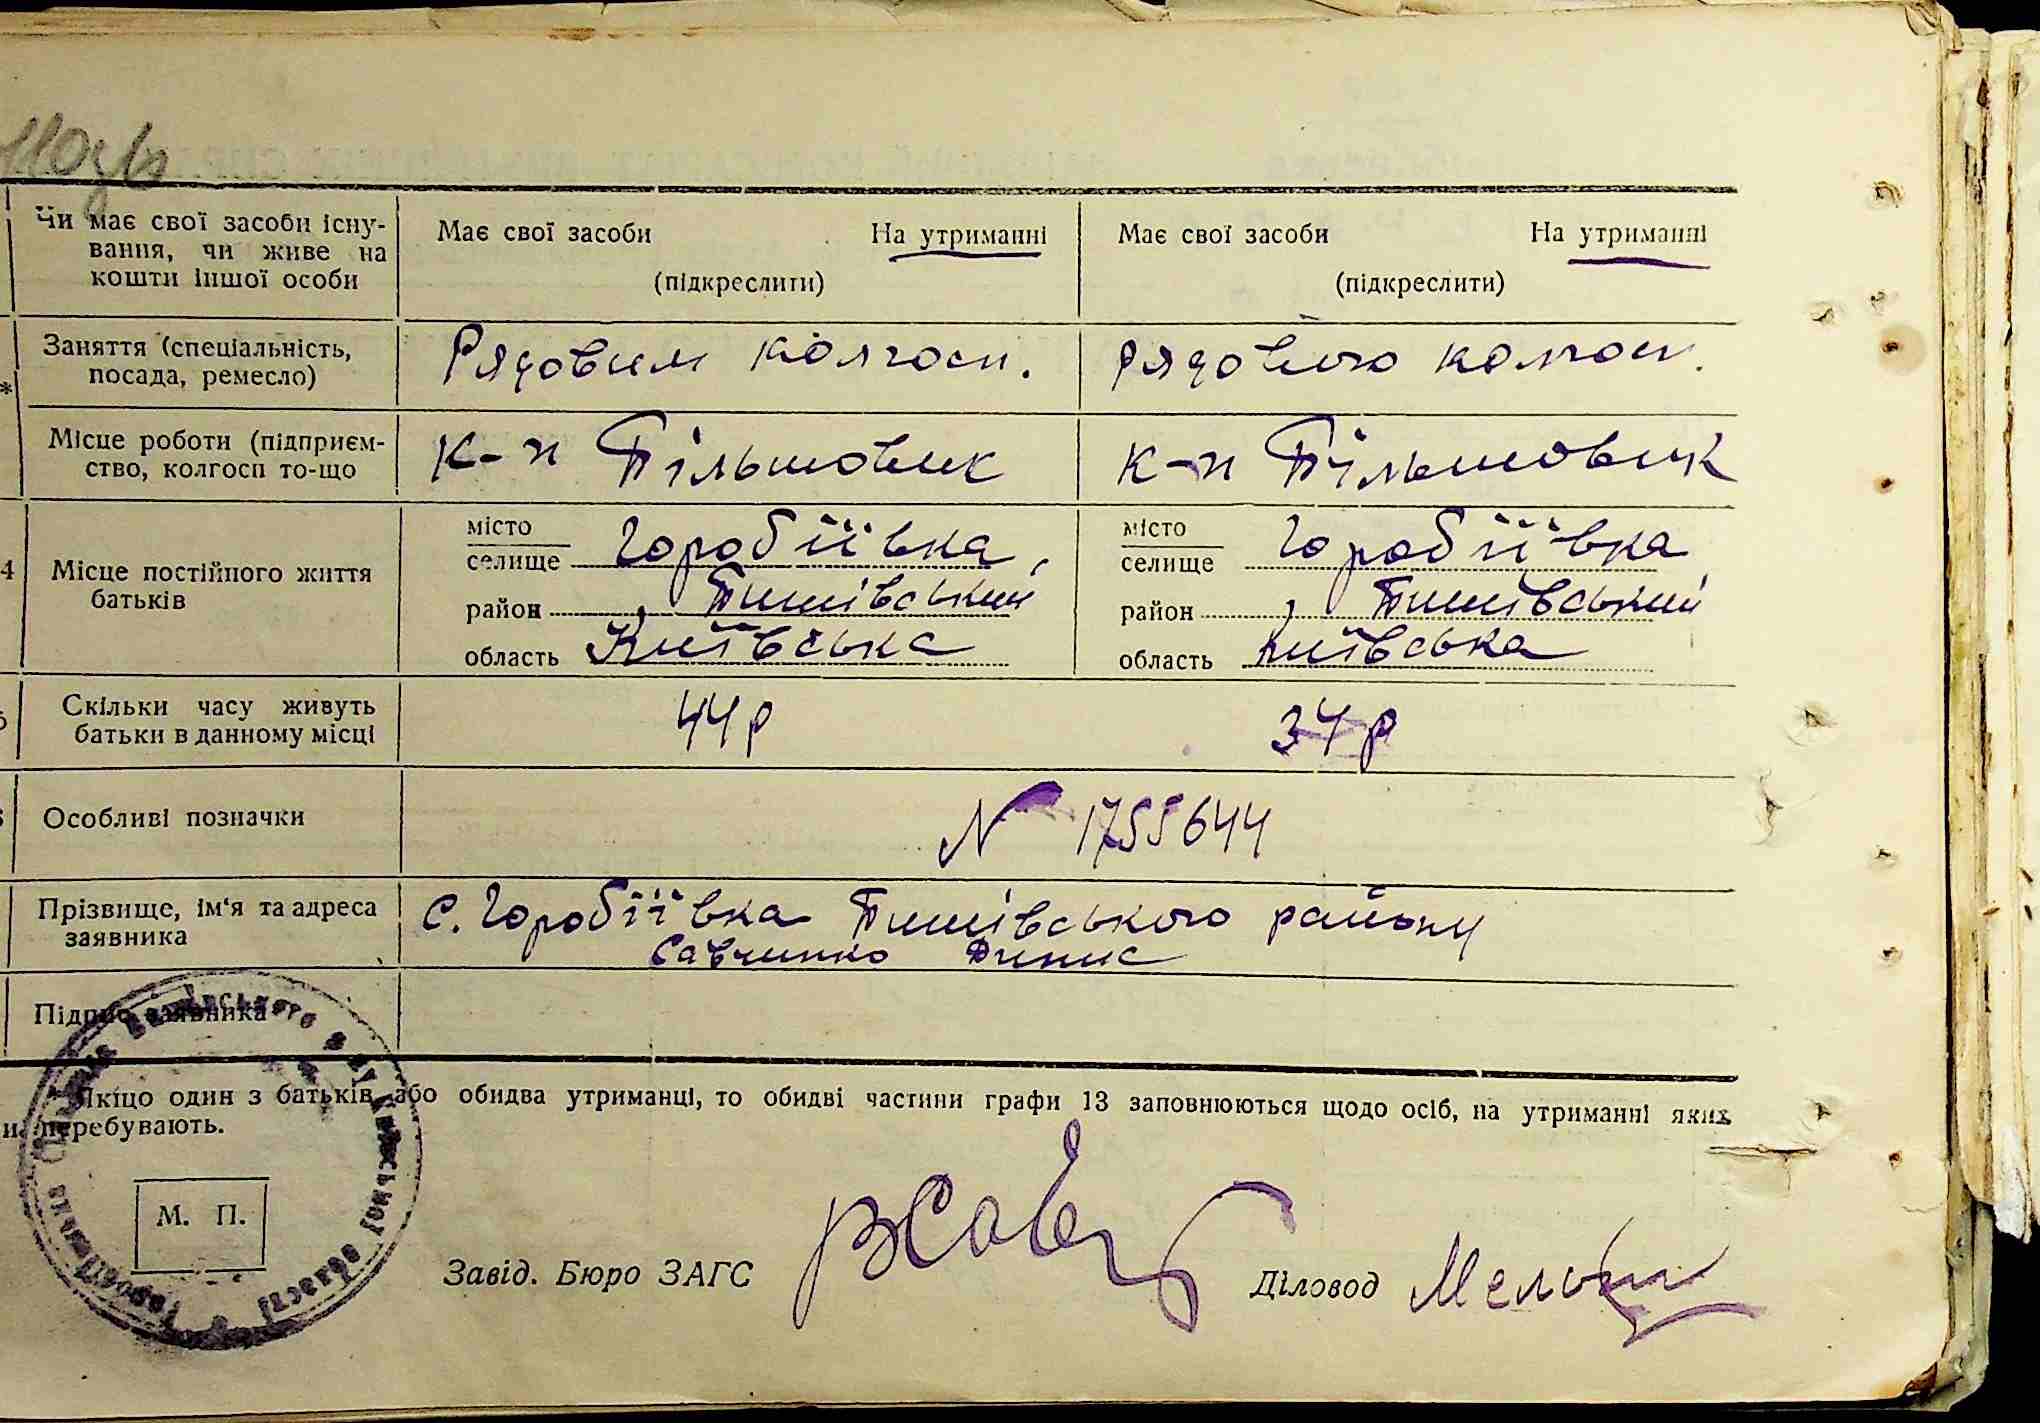 Чи має свої засоби існу-
вання, чи живе на
кошти іншої особи
Має свої засоби На утриманні
(підкреслити)
Має свої засоби На утриманні
(підкреслити)
Заняття (спеціальність,
посада, ремесло)
Рядовим колгосп.
рядовою колгосп.
*
Місце роботи (підприєм-
ство, колгосп то-що
к-п Більшовик
к-п Більшовик
4
Місце постійного життя
батьків
місто
селище Горобіївка,
район Бишівський
область Київська
місто
селище Горобіївка
район Бишівський
область Київська
Скільки часу живуть
батьки в данному місці
44 р
34 р
Особливі позначки
N 1755644
Прізвище, ім'я та адреса
заявника
с. Горобіївка Бишівського району
Савченко Денис
Підпис заявника
Якщо один з батьків або обидва утриманці, то обидві частини графи 13 заповнюються щодо осіб, на утриманні яких
перебувають.
М. П.
Завід. Бюро ЗАГС
Діловод